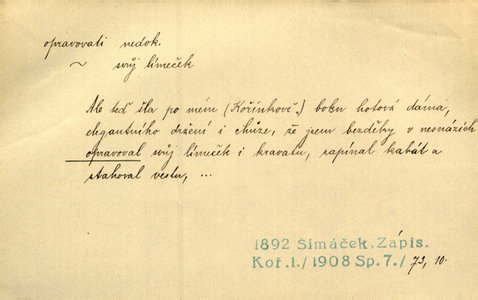 opravovati nedok.
~ svůj límeček
Ale teď šla po mém (Kořínkově.) boku hotová dáma,
elegantního držení i chůze, že jsem bezděky v nesnázích
opravoval svůj límeček i kravatu, zapínal kabát a
stahoval vestu, ...
1892 Šimáček, Zápis.
Koř.1./1908 Sp.7./ 73, 10.